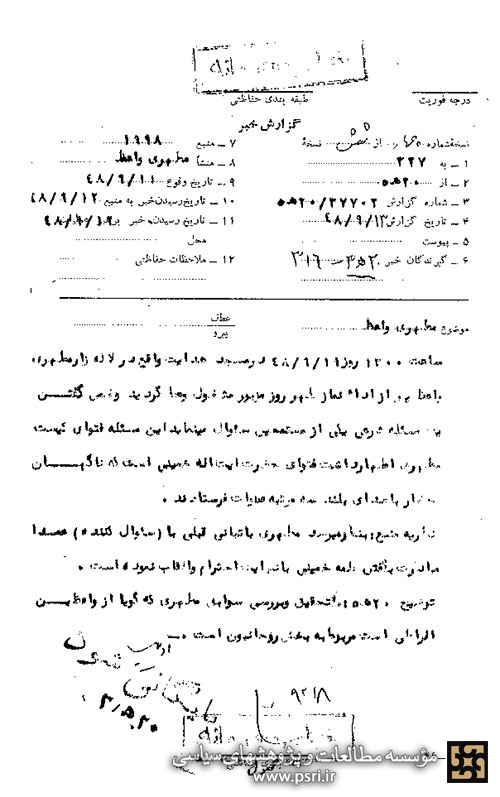 خیلی محرمانه
درجه فوریت
طبقه بندی حفاظتی
گزارش خبر
نسخه شماره از نسخه
۱ ـ به ۳۲۷
۲ ـ از ۲۰ ه
۳ ـ شماره گزارش ۲۰ ه/۳۷۷۰۲
۴ ـ تاریخ گزارش ۴۸/۹/۱۳
۵ ـ پیوست
۶ ـ گیرندگان خبر ۳۱۶
۷ ـ منبع ۱۹۹۸
۸ ـ منشأ مطهری واعظ
۹ ـ تاریخ وقوع ۴۸/۹/۱۱
۱۰ ـ تاریخ رسیدن خبر به منبع ۴۸/۹/۱۲
۱۱ ـ تاریخ رسیدن خبر ۴۸/۹/۱۲
محل
۱۲ ـ ملاحظات حفاظتی
موضوع مطهری واعظ
عطف
پیرو
ساعت ۱۳۰۰ روز ۴۸/۹/۱۱ در مسجد هدایت واقع در لاله زار مطهری
واعظ پس از اداء نماز ظهر روز مزبور مشغول وعظ گردید وضمن گفتن
یک مسئله شرعی یکی از مستمعین سئوال مینماید این مسئله فتوای کیست
مطهری اظهار داشت فتوای حضرت آیت اله خمینی است که ناگهان
حضار با صدای بلند سه مرتبه صلوات فرستادند .
نظریه منبع : بنظر میرسد مطهری با تبانی قبلی با (سئوال کننده) عمدا
مبادرت بگفتن کلمه خمینی با نهایت احترام والقاب نموده است .
توضیح ۲۰ ه : تحقیق وبررسی سوابق مطهری که گویا از واعظین
افراطی است مربوط به بخش روحانیون است .
۹۲۱۸
خیلی محرمانه
مؤسسه مطالعات و پژوهشهای سیاسی
www.psri.ir